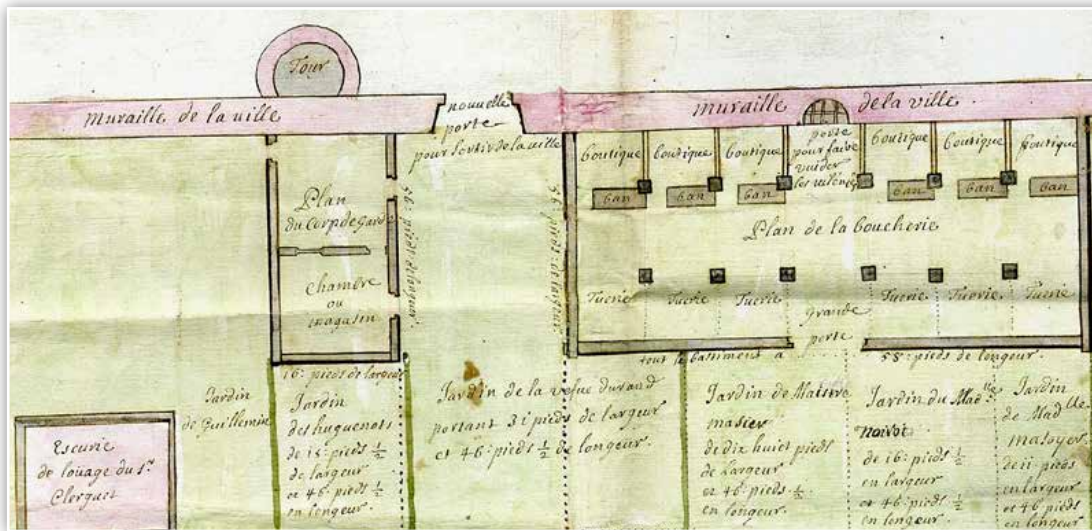 Tour
muraille de la uille
nouuelle
porte
pour sortir de la uille
muraille de la ville.
Plan
du Corp de Garde
Chambre
ou
magasin
16: pieds de largeur
boutique
boutique
boutique
porte
pour faire
vuider
les
boutique
boutique
boutique
ban
ban
ban
ban
ban
ban
Plan de la boucherie
Tuerie
Tuerie
Tuerie
Grande
porte
Tuerie
Tuerie
Tuerie
tout le bastiment a
58: pieds de longeur.
Escurie
de louage du Sr
Clerguet
Jardin
de Guillemin
Jardin
des huguenots
de 15: pieds ½
de largeur
et 46: pieds ½
en longeur.
Jardin de la vefue durand
portant 31 pieds de largeur
et 46: pieds ½ de longeur.
Jardin de Maistre
masier
de dix huict pieds
de largeur
et 46: pieds ½
en longeur.
Jardin du Mad
noirot
de 16: pieds ½
en largeur
et 46: pieds ½
en longeur.
Jardin
de Madlle
de 11: pieds
en largeur
et 46 pieds
en longeur